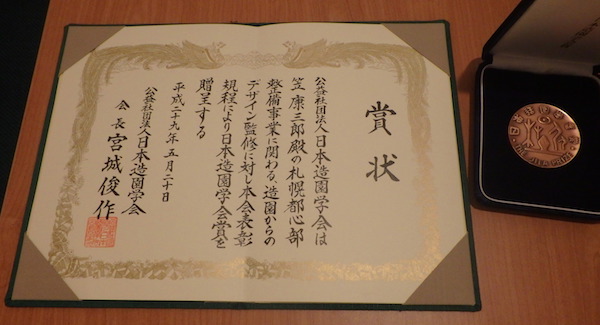 賞状
公益社団法人日本造園学会は
笠康三郎殿の札幌都心部
整備事業に関わる、造園からの
デザイン監修に対し本会表彰
規程により日本造園学会賞を
贈呈する
平成二十九年五月二十日
公益社団法人日本造園学会
会長 宮城俊作